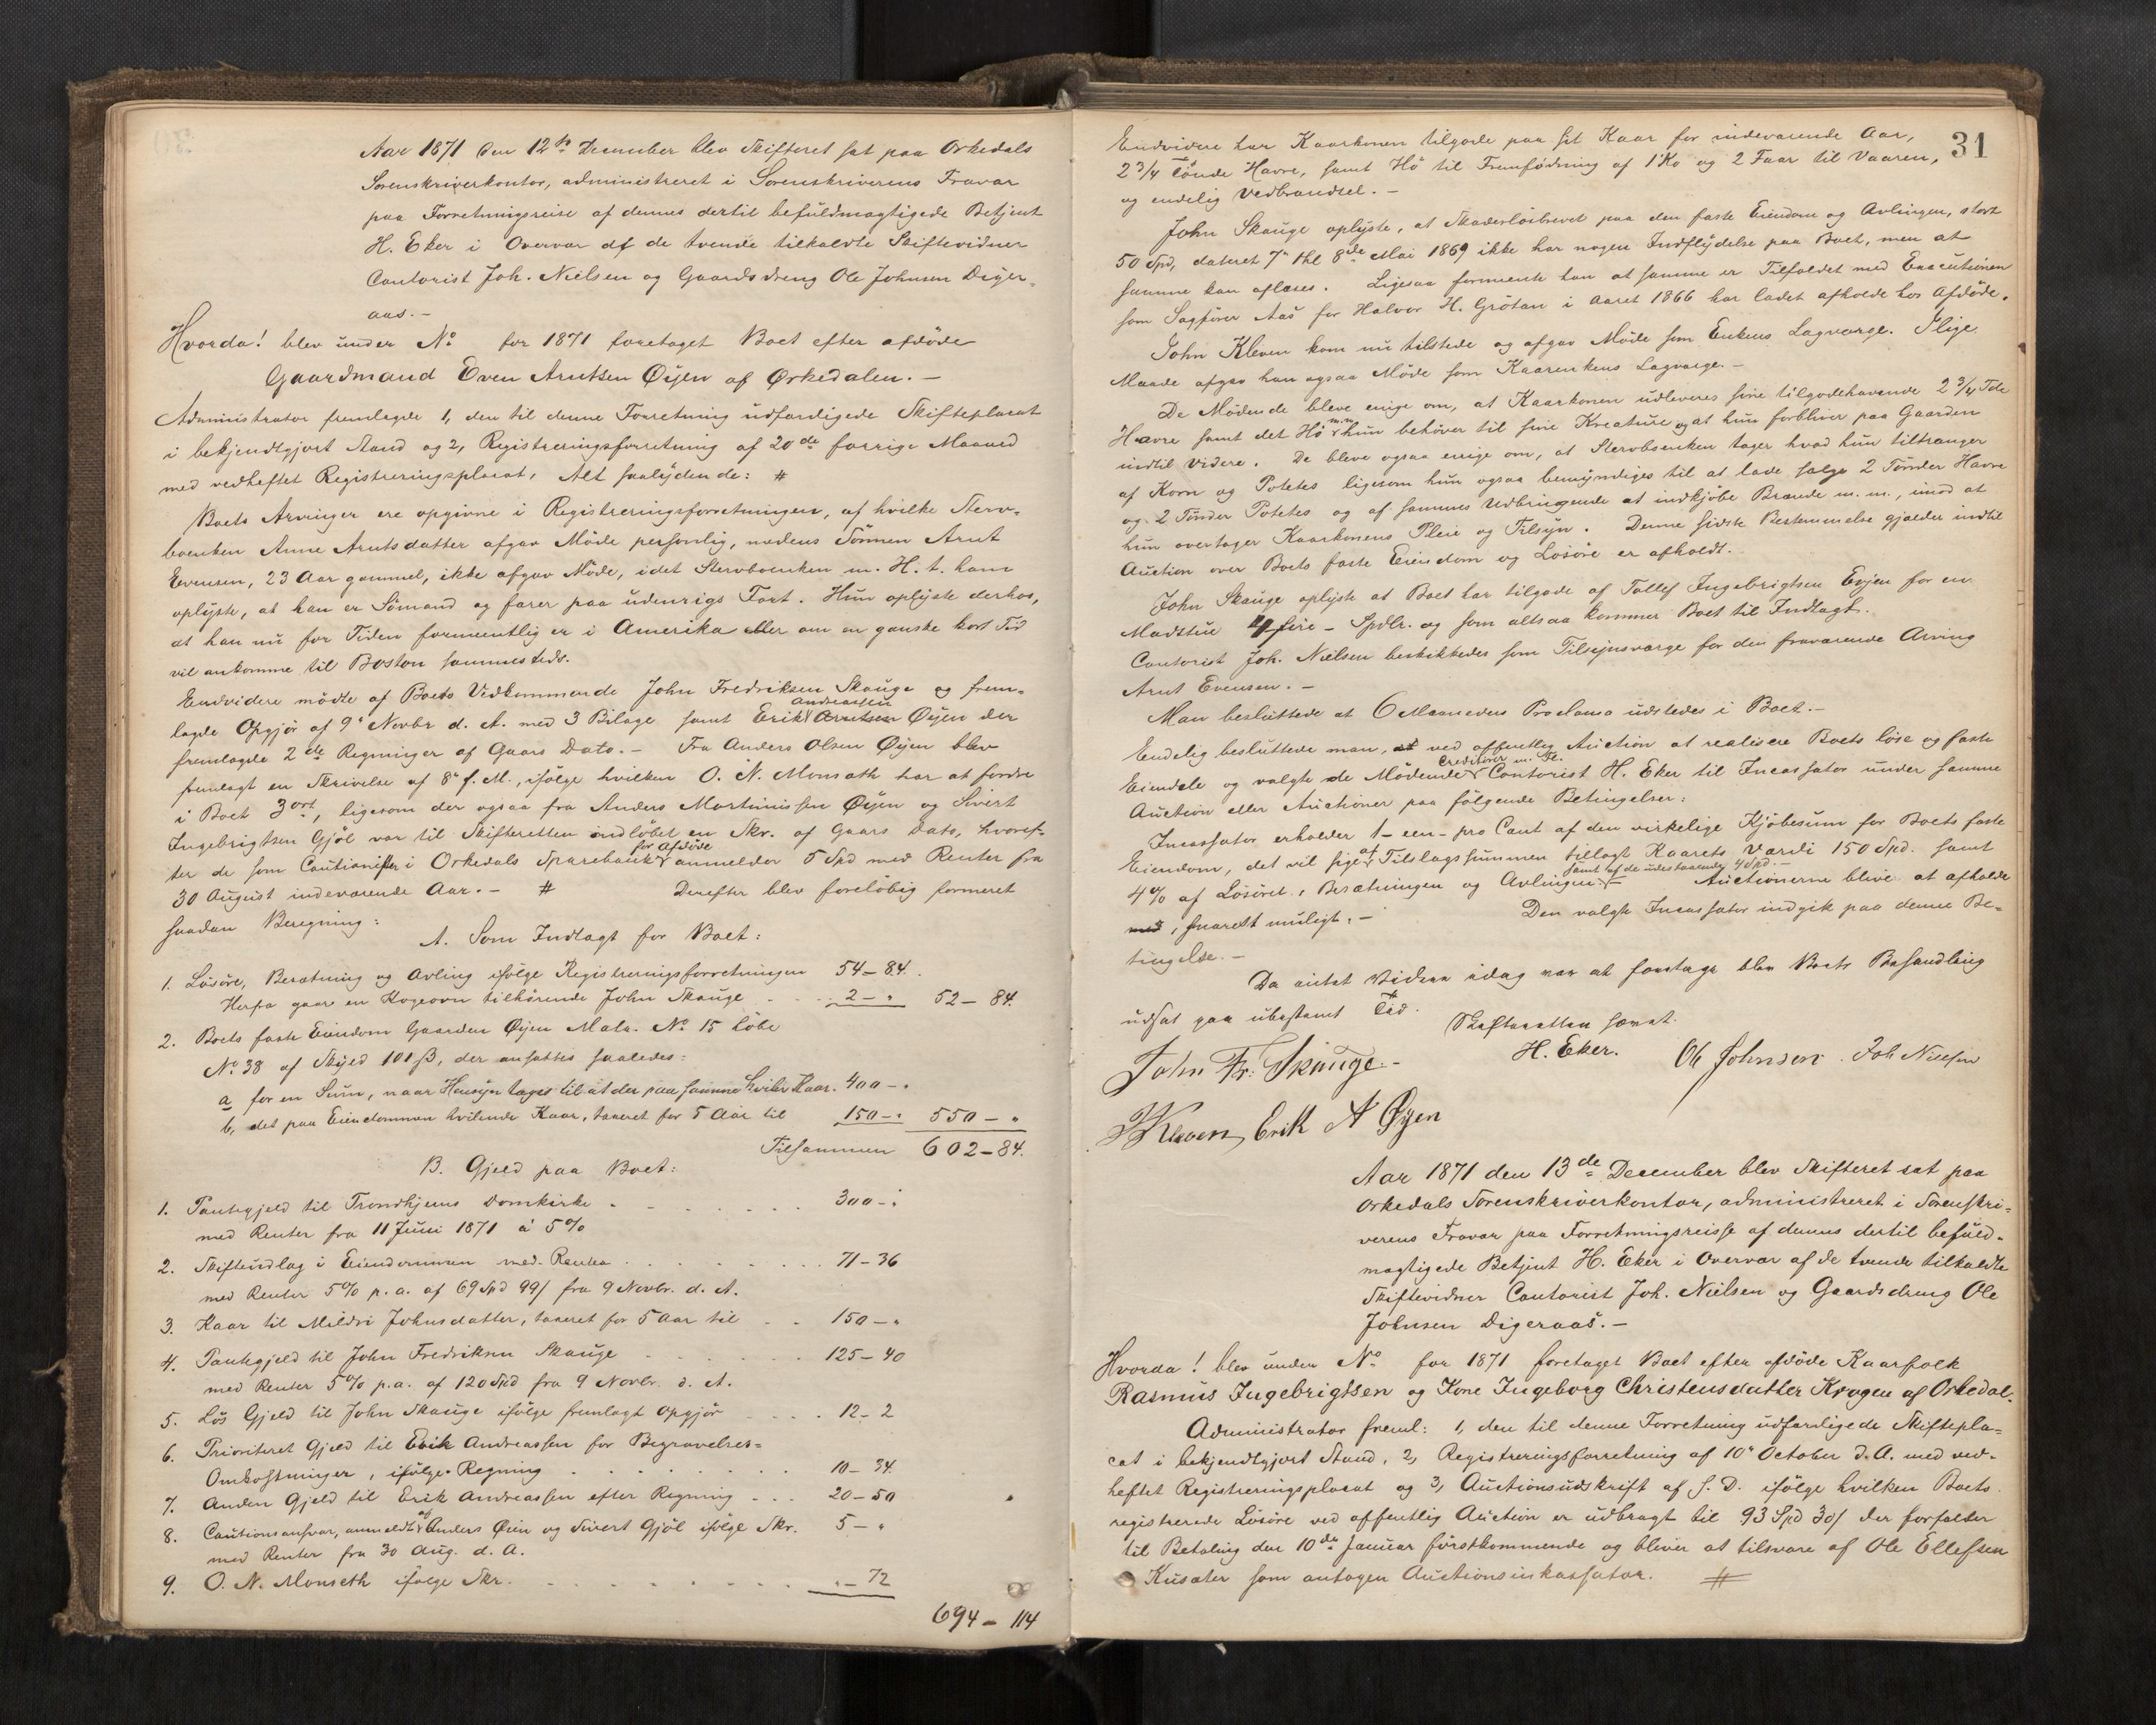 Aar 1871 den 12te December blev Skifteret sat paa Orkedals
Sorenskriverkontor, administreret i Sorenskriverens Fravær
paa Forretningsreise af dennes dertil befuldmægtigede Betjent
H. Eker i Overvær af de tvende tilkaldte Skiftevidner
Contorist Joh. Nielsen og Gaardsdreng Ole Johnsen Diger-
aas.-
Hvorda! blev under No for 1871 foretaget Boet efter afdöde
Gaardmand Even Arntsen Öijen af Ørkedalen.-
Administrator fremlagde 1, den til denne Forretning udfærdigede Skifteplacat
i bekjendtgjort Stand og 2, Registreringsforretning af 20de forrige Maaned
med vedheftet Registreringsplacat, Alt saalydende: #
Boets Arvinger ere opgivne i Registreringsforretningen, af hvilke Sterv-
boenken Anne Arntsdatter afgav Möde personlig, medens Sönnen Arnt
Evensen, 23 Aar gammel, ikke afgav Möde, idet Stervboenken m. H. t. ham
oplyste, at han er Sömand og farer paa udenrigs Fart. Hun oplyste derhos,
at han nu for Tiden formentlig er i Amerika eller om en ganske kort Tid
vil ankomme til Boston sammesteds.
Endvidere mödte af Boets Vedkommende John Fredriksen Skauge og frem-
lagde Opgjör af 9de Novbr d. A. med 3 Bilage samt Erik Andreassen Arntsen Öijen der
fremlagde 2de Regninger af Gaars Dato.- Fra Anders Olsen Öijen blev
fremlagt en Skrivelse af 8de f. M., ifölge hvilken O. N. Monseth har at fordre
i Boet 3 ort, ligesom der ogsaa fra Anders Martinissen Öijen og Sivert
Ingebrigtsen Gjöl var til Skifteretten indlöbet en Skr. af Gaars Dato, hvoref-
ter de som Cautionister i Orkedals Sparebank for Afdöde anmelder 5 Spd med Renter fra
30 August indeværende Aar.- # Derefter blev forelöbig formeret
saadan Beregning:
A. Som Indtægt for Boet:
1. Lösöre, Besætning og Avling ifölge Registreringsforretningen 54-84.
Herfra gaar en Kogeovn tilhörende John Skauge 2-" 52-84.
2. Boets faste Eiendom Gaarden Öijen Matr. No 15 Löbe
No 38 af Skyld 101 ß, der ansattes saaledes:
a for en Sum, naar Hensyn tages til at der paa samme hviler Kaar. 400-"
b, det paa Eiendommen hvilende Kaar, taxeret for 5 Aar til 150-" 550-"
Tilsammen 602-84.
B. Gjeld paa Boet:
1. Pantegjeld til Trondhjems Domkirke 300-"
med Renter fra 11 Juni 1871 á 5%
2. Skifteudlæg i Eiendommen med Renter 71-36
med Renter 5% p. a. af 69 Spd 99 ß fra 9 Novbr. d. A.
3. Kaar til Mildri Johnsdatter, taxeret for 5 Aar til 150-"
4. Pantegjeld til John Fredriksen Skauge 125-40
med Renter 5% p.a. af 120 Spd fra 9 Novbr. d. A.
5. Lös Gjeld til John Skauge ifölge fremlagt Opgjör 12-2
6. Prioriteret Gjeld til Erik Andreassen for Begravelses-
Omkostninger, ifölge Regning 10-34.
7. Anden Gjeld til Erik Andreassen efter Regning 20-50
8. Cautionsansvar, anmeldt af Anders Öien og Sivert Gjöl ifölge Skr. 5-"
med Renter fra 30 Aug. d. A.
9. O. N. Monseth ifölge Skr. "-72
694-114
31
Endvidere har Kaarkonen tilgode paa sit Kaar for indeværende Aar,
2 3/4 Tönde Havre, samt Hö til Fremfödning af 1 Ko og 2 Faar til Vaaren,
og endelig Vedbrændsel.-
John Skauge oplyste, at Skadeslösbrevet paa den faste Eiendom og Avlingen, stort
50 Spd, dateret 7de thl 8de Mai 1869 ikke har nogen Indflydelse paa Boet, men at
samme kan aflæses. Ligesaa formente han at samme er Tilfældet med Executionen
som Sagförer Aas for Halvor H. Grötan i Aaret 1866 har ladet afholde hos Afdöde.
John Kleven kom nu tilstede og afgav Möde som Enkens Lagværge. Slige
Maade afgav han ogsaa Möde som Kaarenkens Lagværge.-
De Mödende bleve enige om, at Kaarkonen udleveres sine tilgodehavende 2 3/4 Tde
Havre samt det Hö m.m. hun behöver til sine Kreature og at hun forbliver paa Gaarden
indtil videre. De bleve ogsaa enige om, at Stervboenken tager hvad hun tiltrænger
af Korn og Potetes ligesom hun ogsaa bemyndiges til at lade sælge 2 Tönder Havre
og 2 Tönder Potetes og af sammes Udbringende at indkjöbe Brænde m. m., imod at
hun overtager Kaarkonens Pleie og Tilsyn. Denne sidste Bestemmelse gjælder indtil
Auction over Boets faste Eiendom og Lösöre er afholdt.
John Skauge oplyste at Boet har tilgode af Tollef Ingebrigtsen Evjen for en
Madstue 4 fire - Spdlr. og som altsaa kommer Boet til Indtægt.
Contorist Joh. Nielsen beskikkedes som Tilsynsværge for den fraværende Arving
Arnt Evensen.-
Man besluttede at 6 Maaneders Proclama udstedes i Boet.-
Endelig besluttede man, at ved offentlig Auction at realisere Boets löse og faste
Eiendele og valgte de Mödende Creditorer m. Fl. Contorist H. Eker til Incassator under samme
Auction eller Auctioner paa fölgende Betingelser:
Incassator erholder 1 - een - pro Cent af den virkelige Kjöbesum for Boets faste
Eiendom, det vil sige af Tilslagssummen tillagt Kaarets Værdi 150 Spd. samt
4% af Lösöret, Besætningen og Avlingen samt af de udestaaende 4 Spd.- Auctionerne blive at afholde
med, snarest muligt.- Den valgte Incassator indgik paa denne Be-
tingelse.-
Da intet Videre idag var at foretage blev Boets Behandling
udsat paa ubestemt Tid.
Skifteretten hævet.
John Fr. Skauge.- H. Eker. Ole Johnsen. Joh Nielsen
J Kleven, Erik A Øyen
Aar 1871 den 13de December blev Skifteret sat paa
Orkedals Sorenskriverkontor, administreret i Sorenskri-
verens Fravær paa Forretningsreisse af dennes dertil befuld-
mægtigede Betjent H. Eker i Overvær af de tvende tilkaldte
Skiftevidner Contorist Joh. Nielsen og Gaardsdreng Ole
Johnsen Digeraas.-
Hvorda! blev under No for 1871 foretaget Boet efter afdöde Kaarfolk
Rasmus Ingebrigtsen og Kone Ingeborg Christensdatter Krogen af Orkedal.
Administrator freml: 1, den til denne Forretning udfærdigede Skiftepla-
cat i bekjendtgjort Stand, 2, Registreringsforretning af 10de October d.A. med ved-
heftet Registreringsplacat og 3, Auctionsudskrift af s. D. ifölge hvilken Boets
registrerede Lösöre ved offentlig Auction er udbragt til 93 Spd 30 ß der forfalder
til Betaling den 10de Januar förstkommende og bliver at tilsvare af Ole Ellefsen
Kusæter som antagen Auctionsinkassator. #